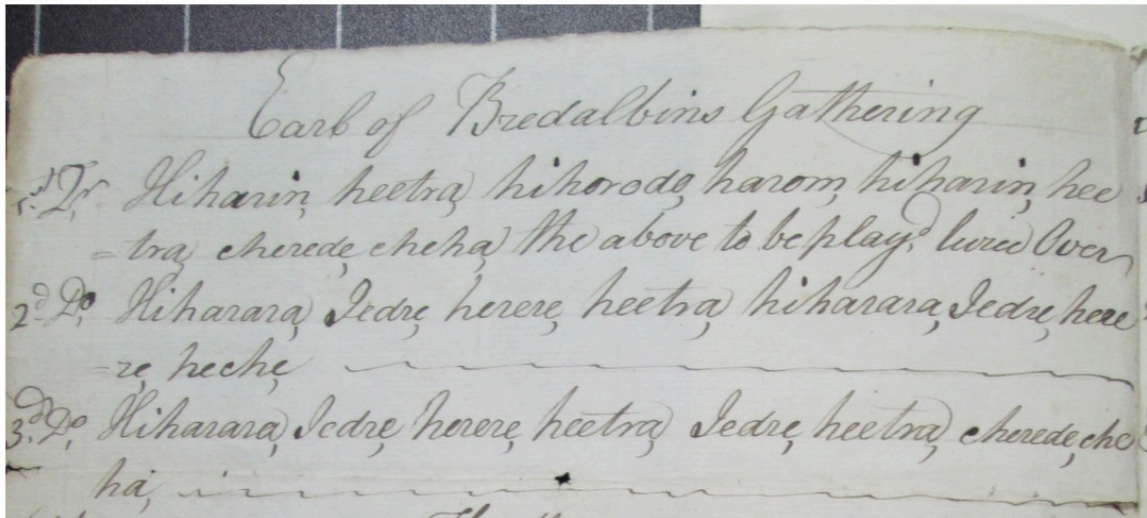 Earl of Bredalbins Gathering
1.st Dr. Hiharin, heetra, hihorodo, harom, hiharin, hee
=tra, cherede, cheha, the above to be play.d Over
2.d Do. Hiharara, Iedre, herere, heetra, hiharara, Iedre, here
=re, heche,
3.d Do. Hiharara, Iedre, herere, heetra, Iedre, heetra, cherede, che
ha,